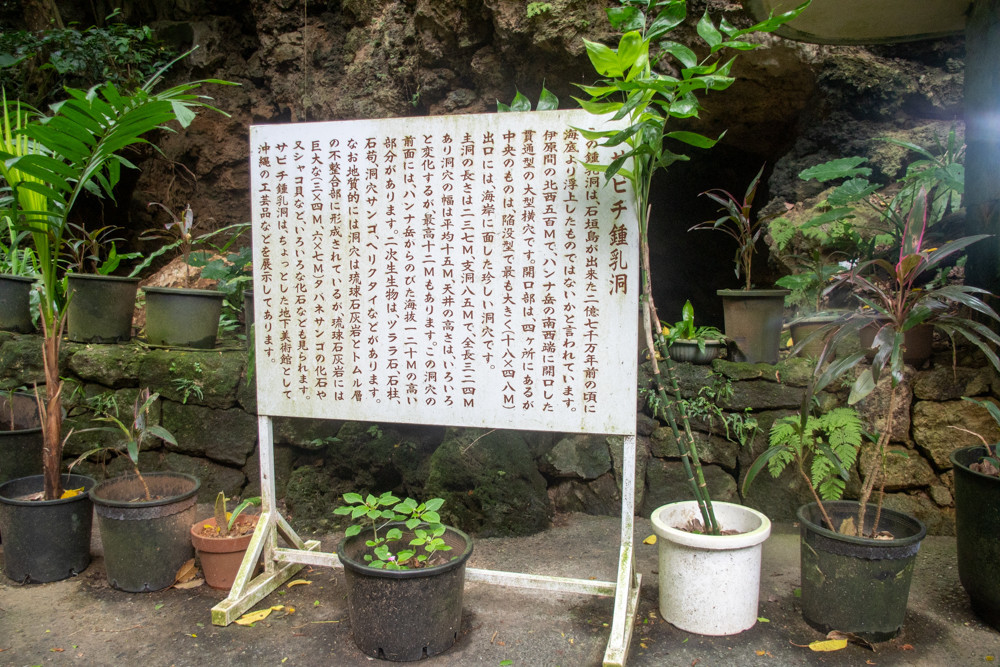 サビチ鍾乳洞
の鍾乳洞は、石垣島が出来た二億七十万年前の頃に
海底より浮上したものではないかと言われています。
伊原間の北西五五Mで、ハンナ岳の南西端に開口した
貫通型の大型横穴です。開口部は、四ヶ所にあるが
中央のものは陥没型で最も大きく（十八×四八M）
出口には、海岸に面した珍しい洞穴です。
主洞の長さは二三七M、支洞八五Mで、全長三二四M
あり洞穴の幅は年均十五M天井の高さは、いろいろ
と変化するが最高十二Mもあります。この洞穴の
前面には、ハンナ岳からのびた海抜一二十Mの高い
部分があります。二次生生物は、ツララ石、石柱、
石荀、洞穴サンゴ、ヘリクタイなどがあります。
なお地質的には洞穴は琉球石灰岩とトムル層
の不整合部に形成されているが、琉球石灰岩には
巨大な（三×四M、六×七M）タハネサンゴの化石や
又シャコ貝など、いろいろな化石なども見られます。
サビチ鍾乳洞は、ちょっとした地下美術館として
沖縄の工芸品などを展示してあります。